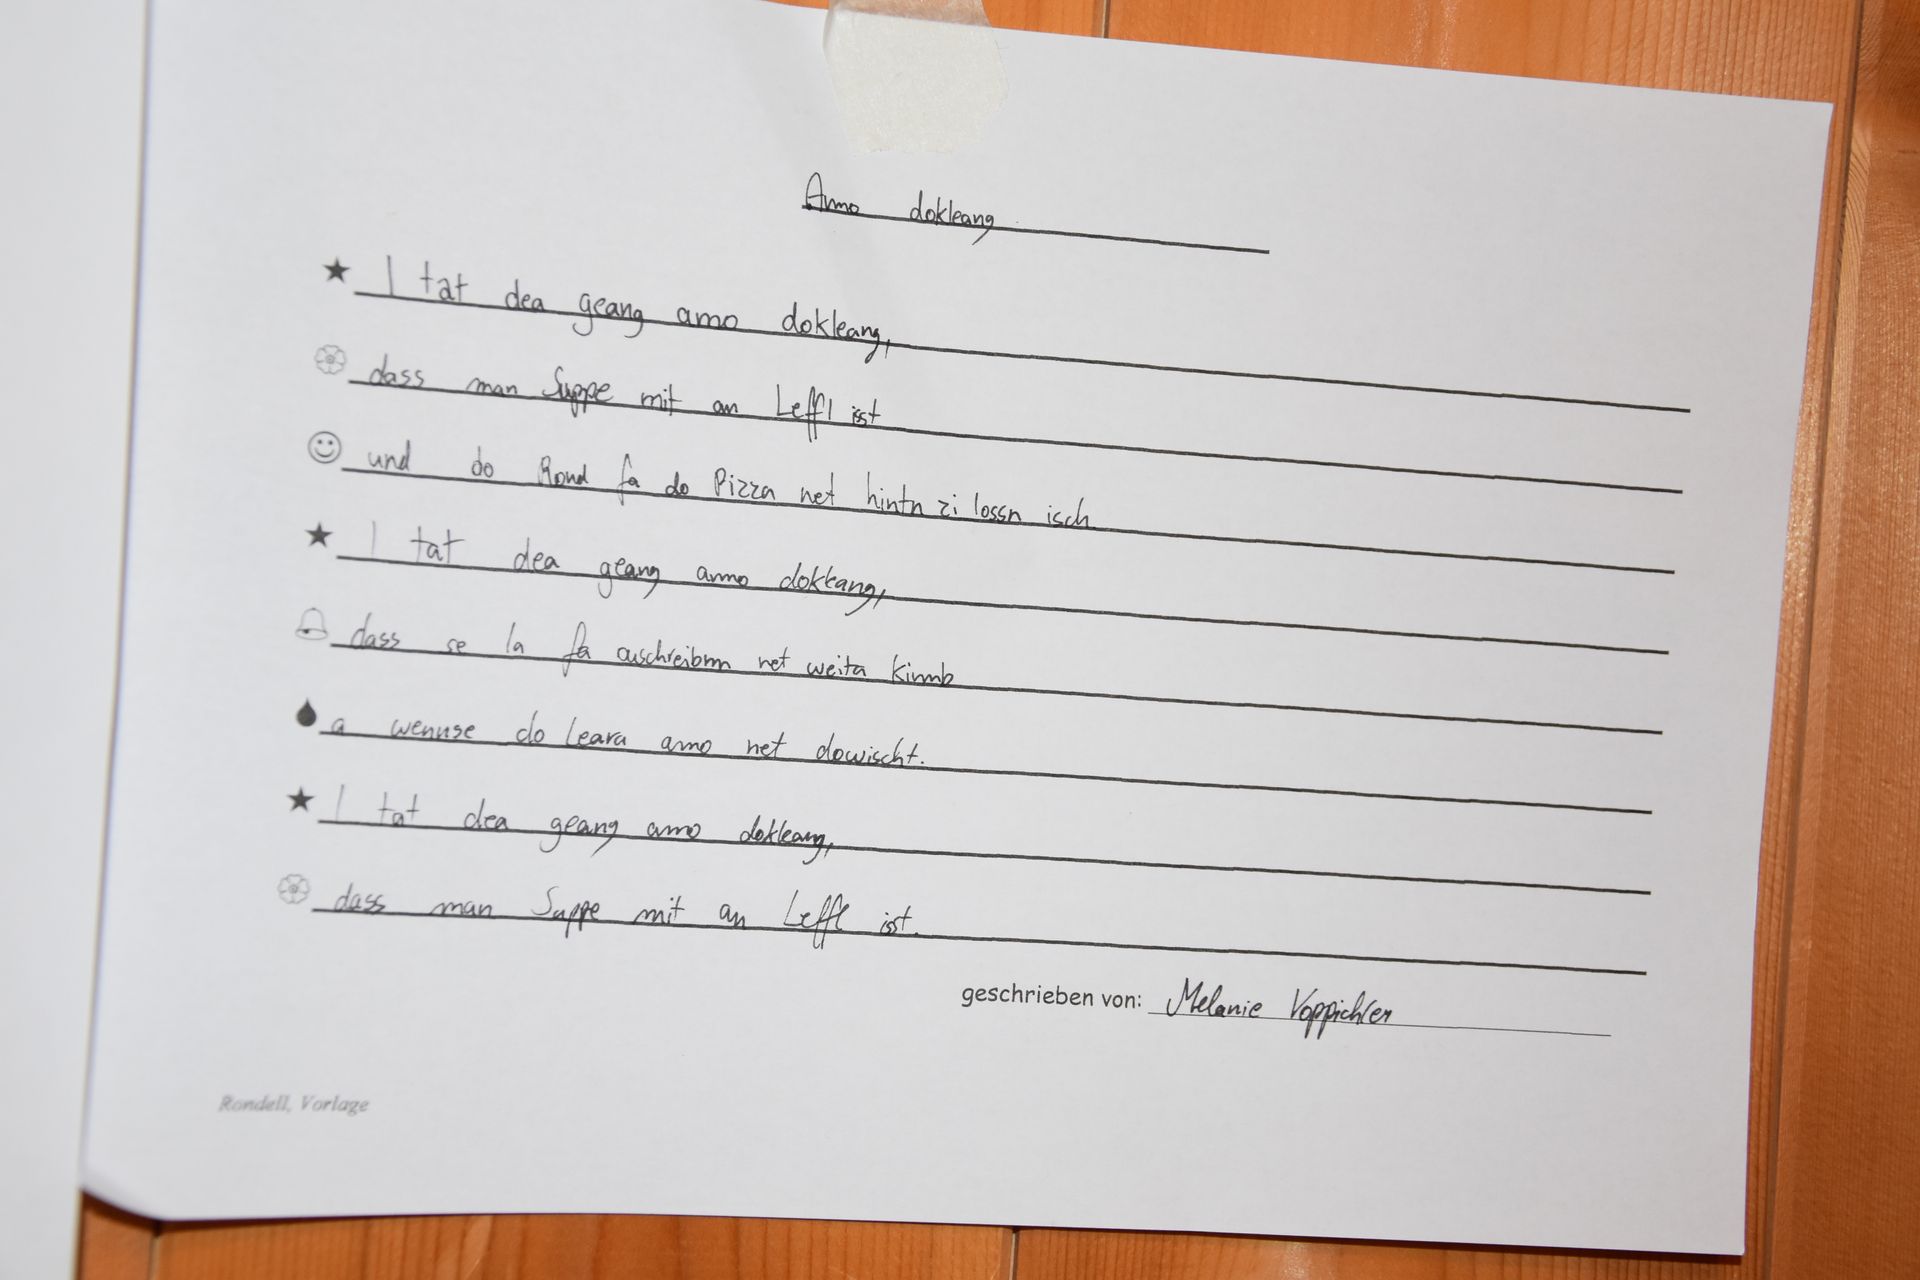 Amo dokleang
I tat dea geang amo dokleang,
dass man Suppe mit an Leffl isst
und do Rond fa do Pizza net hintn zi lossn isch
I tat dea geang amo dokleang,
dass se la fa ouschreibm net weita kimb
a wennse do Leara amo net dowischt.
I tat dea geang amo dokleang,
dass man Suppe mit an Leffl isst.
geschrieben von: Melanie Voppichler
Rondell, Vorlage